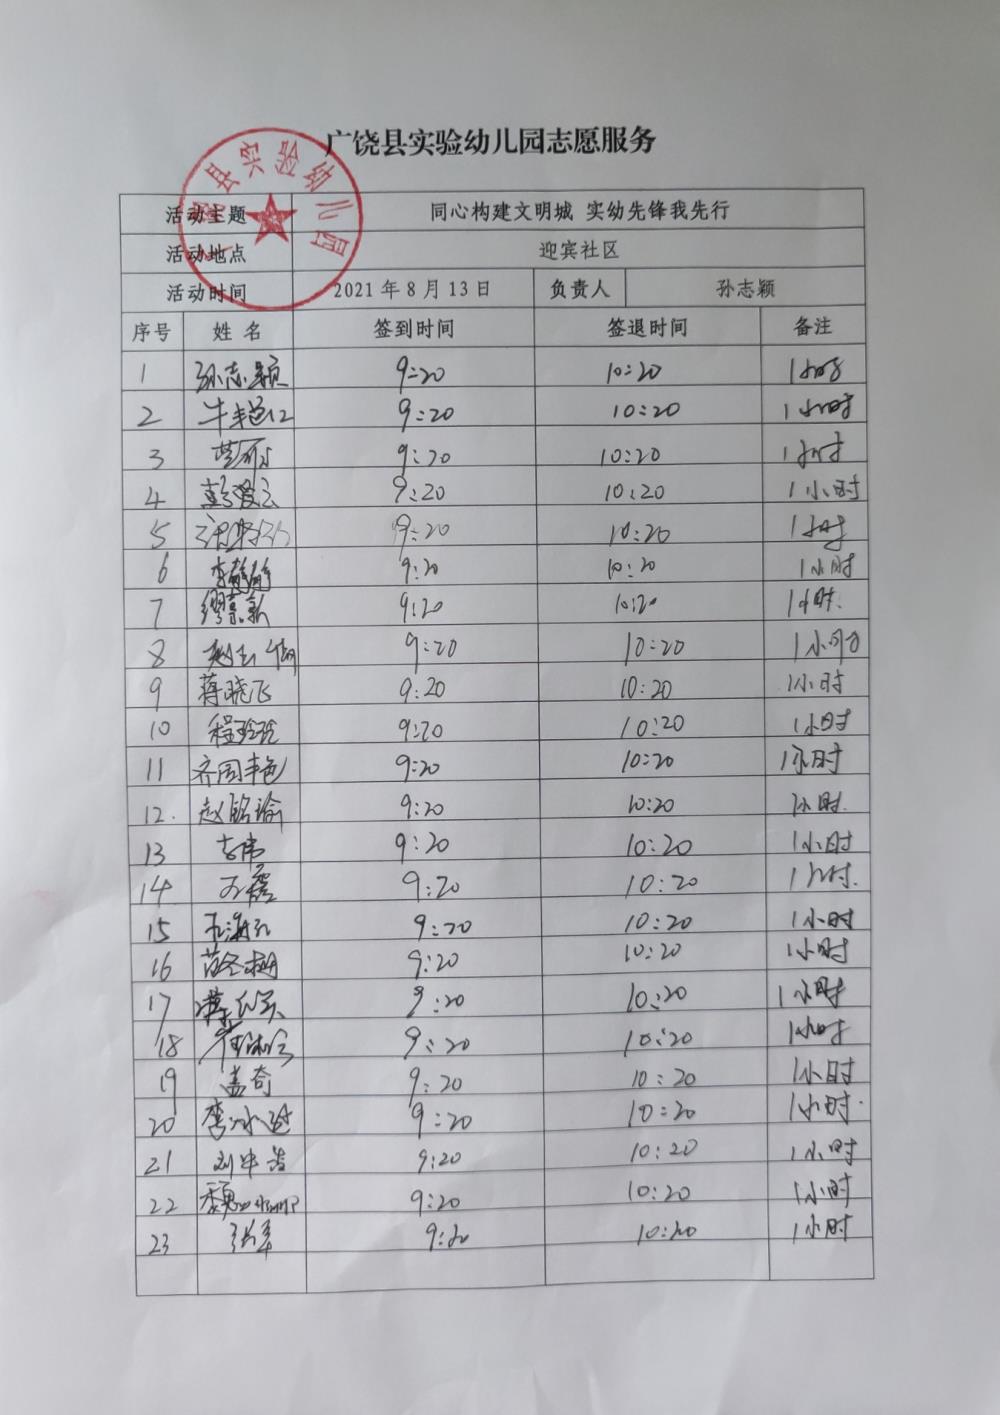 广饶县实验幼儿园志愿服务
县实验幼儿园
活动主题 同心构建文明城 实幼先锋我先行
活动地点 迎宾社区
活动时间 2021年8月13日 负责人 孙志颖
序号 姓名 签到时间 签退时间 备注
1 孙志颖 9:20 10:20 1小时
2 9:20 10:20 1小时
3 9:20 10:20 1小时
4 9:20 10:20 1小时
5 9:20 10:20 1小时
6 李静静 9:20 10:20 1小时
7 9:20 10:20 1小时.
8 9:20 10:20 1小时
9 蒋晓飞 9:20 10:20 1小时
10 程玲玲 9:20 10:20 1小时
11 齐周丰色 9:20 10:20 1小时
12. 赵铭瑜 9:20 10:20 1小时.
13 李伟 9:20 10:20 1小时
14. 9:20 10:20 1小时.
15 9:20 10:20 1小时
16 9:20 10:20 1小时
17 9:20 10:20 1小时
18 9:20 10:20 1小时
19 盖奇 9:20 10:20 1小时
20 9:20 10:20 1小时.
21 9:20 10:20 1小时
22 9:20 10:20 1小时
23 张军 9:20 10:20 1小时